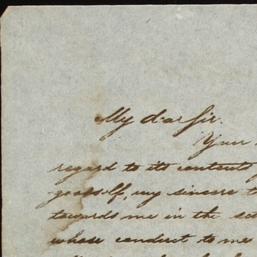 My dear Sir.
Your
regard to its contents
yourself, my sincere
towards me in the
whose conduct to me